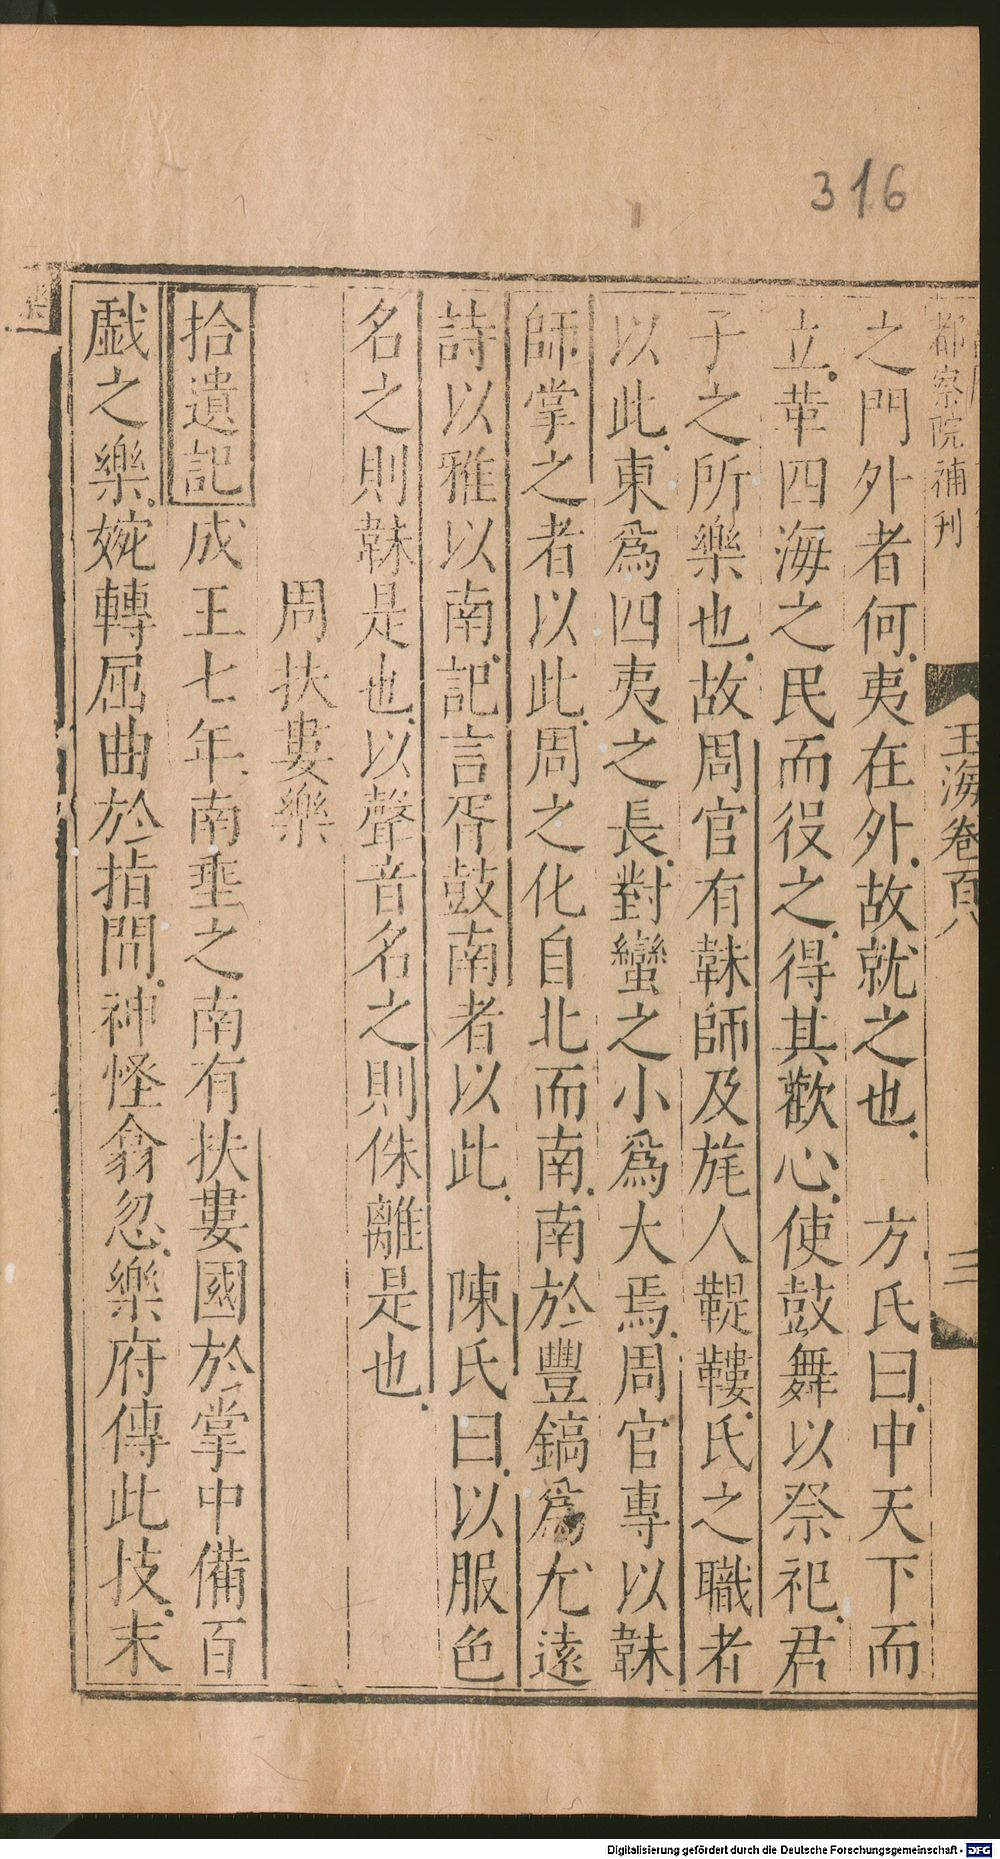 316
都察院補刊
玉海卷百八
三
之門外者何夷在外故就之也　方氏曰中天下而
立革四海之民而役之得其歡心使鼓舞以祭祀君
子之所樂也故周官有韎師及旄人鞮鞻氏之職者
以此東爲四夷之長對蠻之小爲大焉周官專以韎
師掌之者以此周之化自北而南南於豐鎬爲尤遠
詩以雅以南記言胥鼓南者以此　陳氏曰以服色
名之則韎是也以聲音名之則侏離是也
周扶婁樂
拾遺記成王七年南垂之南有扶婁國於掌中備百
戱之樂婉轉屈曲於指間神怪翕忽樂府傳此技末
Digitalisierung gefördert durch die Deutsche Forschungsgemeinschaft - DFG